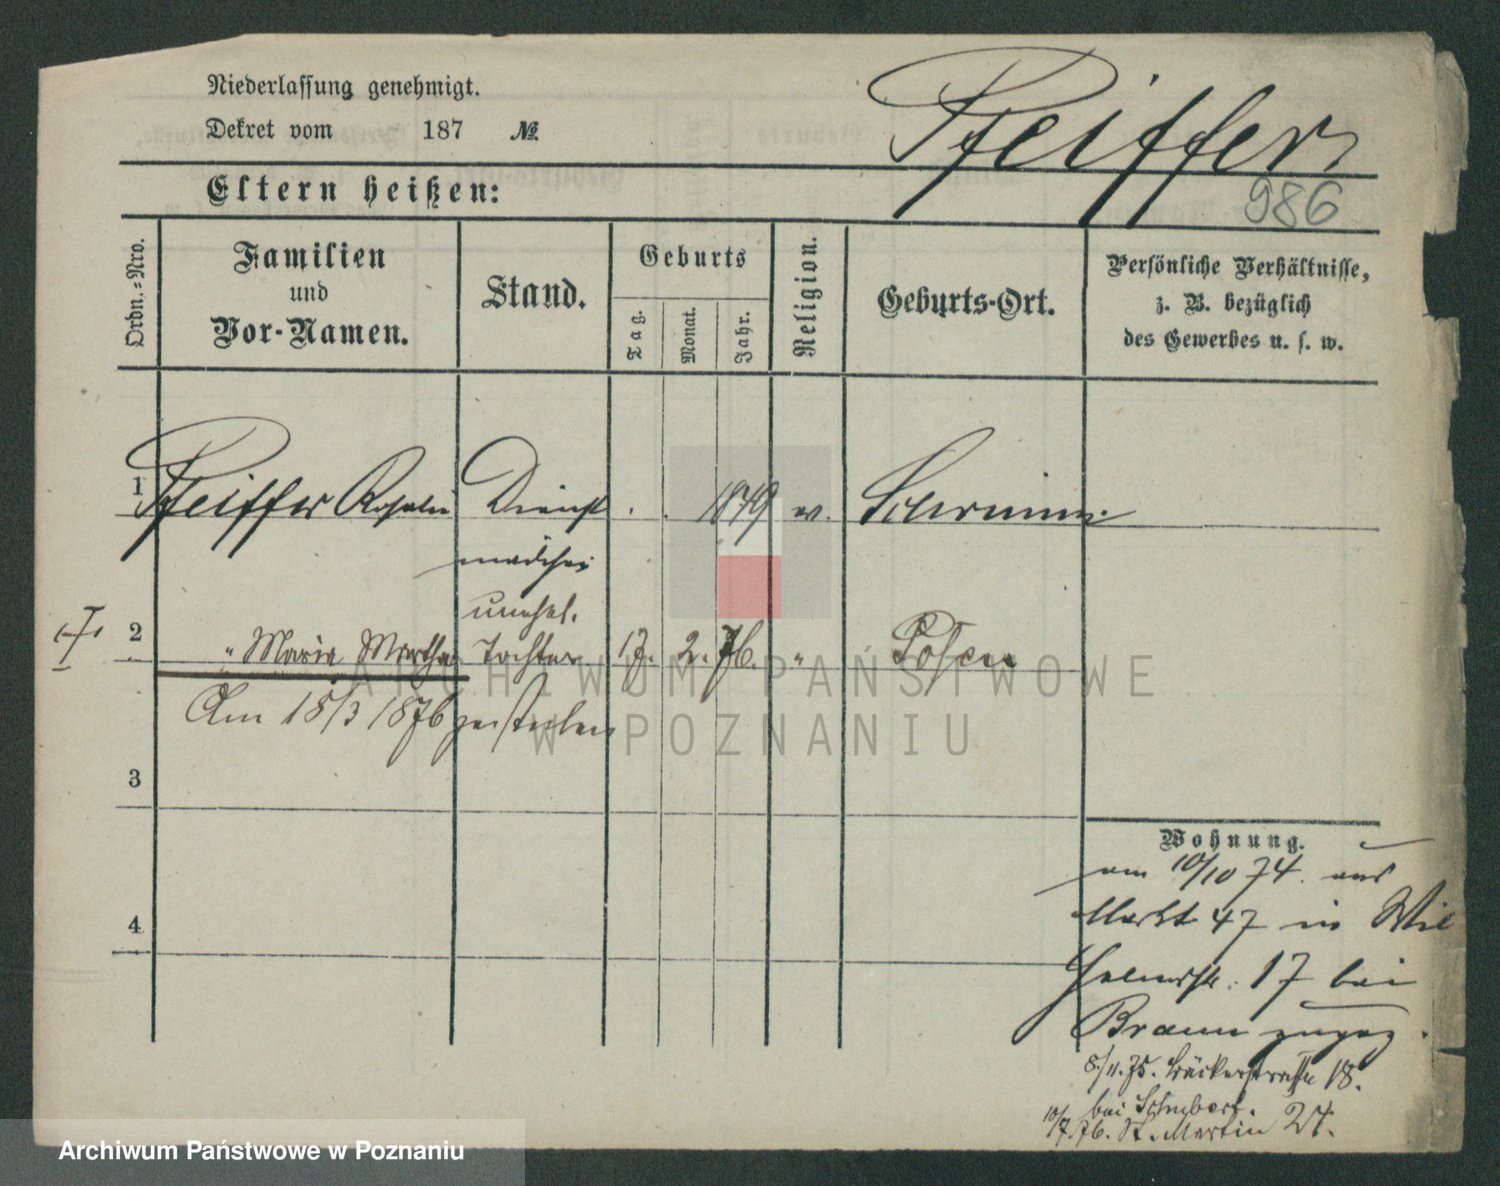 Niederlassung genehmigt.
Dekret vom 187 №
Pfeiffer
986
Eltern heißen:
Ordn.-Nro.
Familien
und
Vor-Namen.
Stand.
Geburts
Tag.
Monat.
Jahr.
Religion.
Geburts-Ort.
Persönliche Verhältnisse,
z. B. bezüglich
des Gewerbes u. s. w.
1 Pfeiffer Rosalie Dienst 1849
mädchen
unehel.
2 " Maria Martha Tochter 17. 2. 76. " Posen
Am 15/3 1876 gestorben
3
4
Wohnung.
am 10/10 74. aus
Markt 47 in Wil
helmstr. 17 bei
Braun zugez.
8/4.75. Bäckerstrasse 18.
bei Schubert.
10/7.76. St. Martin 24.
ARCHIWUM PAŃSTWOWE
W POZNANIU
Archiwum Państwowe w Poznaniu